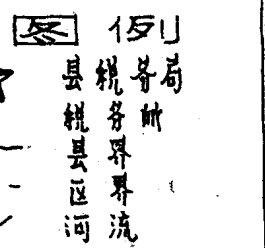 图例
县税务局
税务所
县界
区界
河流